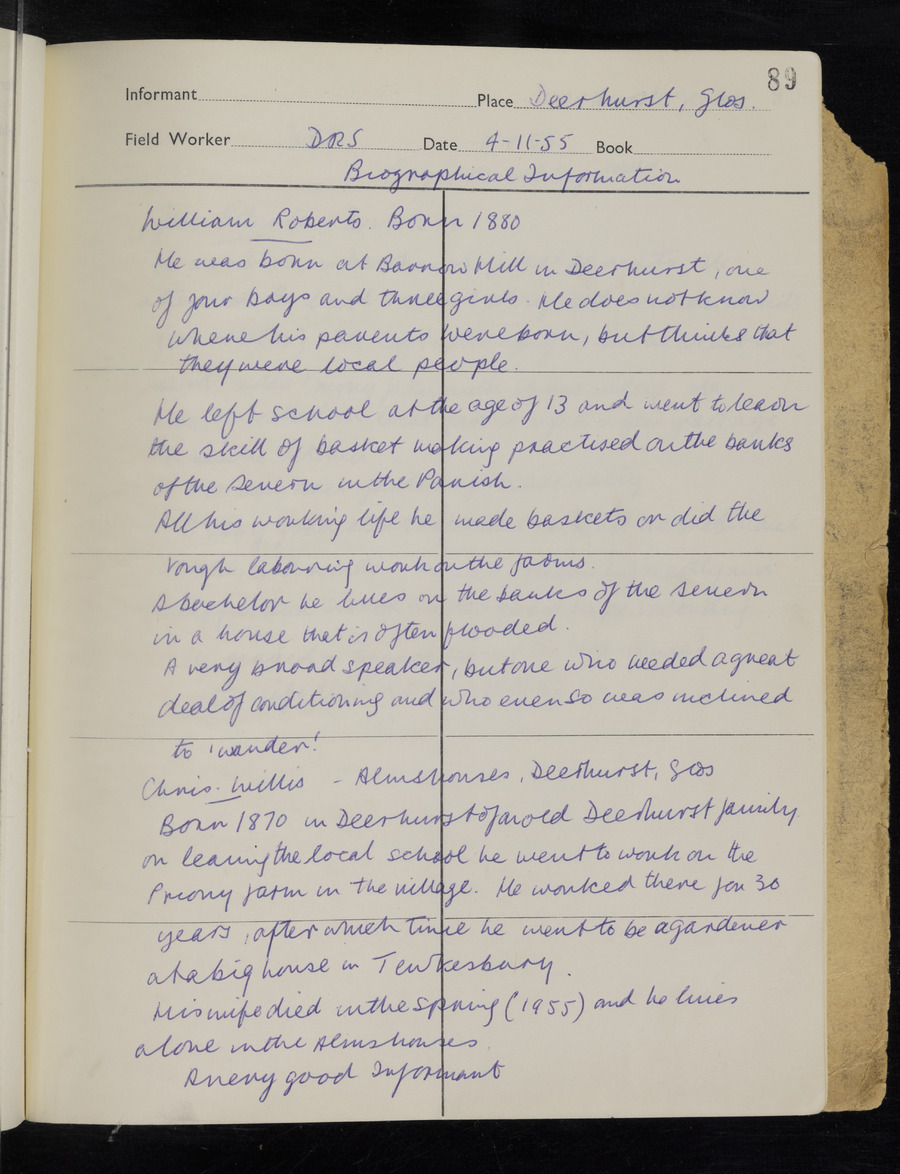 89
Informant Place Deerhurst, Glos.
Field Worker DRS Date 4-11-55 Book
Biographical Information
William Roberts. Born 1880
He was born at Barrow Hill in Deerhurst, one
of four boys and three girls. He does not know
where his parents were born, but thinks that
they were local people.
He left school at the age of 13 and went to learn
the skill of basket making practised on the banks
of the Severn in the Parish.
All his working life he made baskets or did the
rough labouring work on the farms.
A bachelor he lives on the banks of the Severn
in a house that is often flooded.
A very broad speaker, but one who needed a great
deal of conditioning and who even so was inclined
to 'wander'.
Chris. Willis - Almshouses, Deerhurst, Glos
Born 1870 in Deerhurst of an old Deerhurst family
on leaving the local school he went to work on the
Priory farm in the village. He worked there for 30
years, after which time he went to be a gardener
at a big house in Tewkesbury.
His wife died in the Spring (1955) and he lives
alone in the Almshouses.
A very good Informant